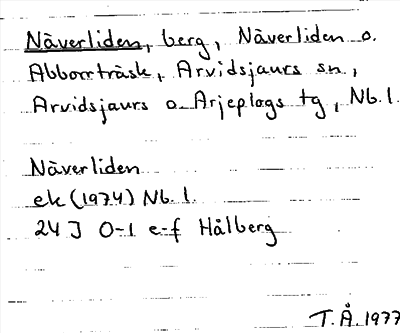 Näverliden, berg, Näverliden o.
Abborrträsk, Arvidsjaurs sn,
Arvidsjaurs o Arjeplogs tg, Nb. l.
Näverliden
ek (1974) Nb. l.
24 J 0-1 e-f Hålberg
T. Å. 1977